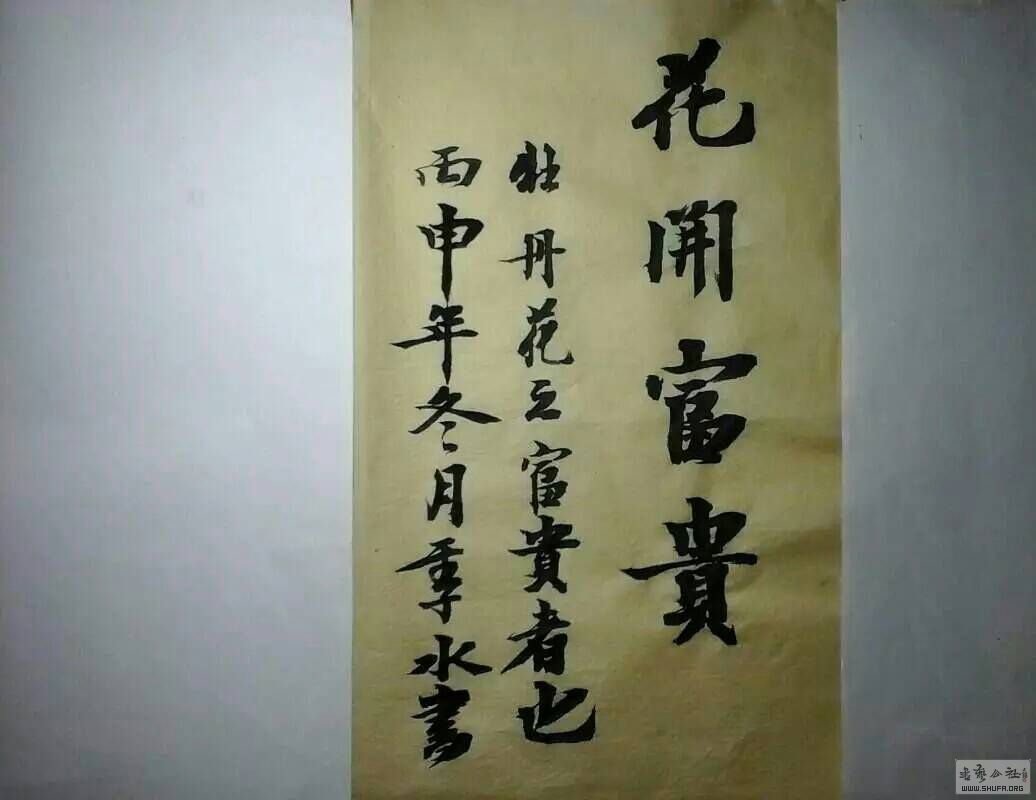 花開富貴
牡丹花之富貴者也
丙申年冬月季水書
书艺公社
WWW.SHUFA.ORG